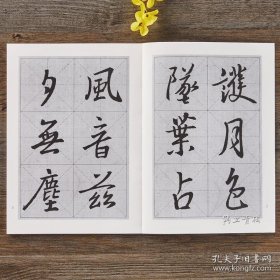 護月色
墜葉占
風音茲
夕無塵
孔夫子旧书网